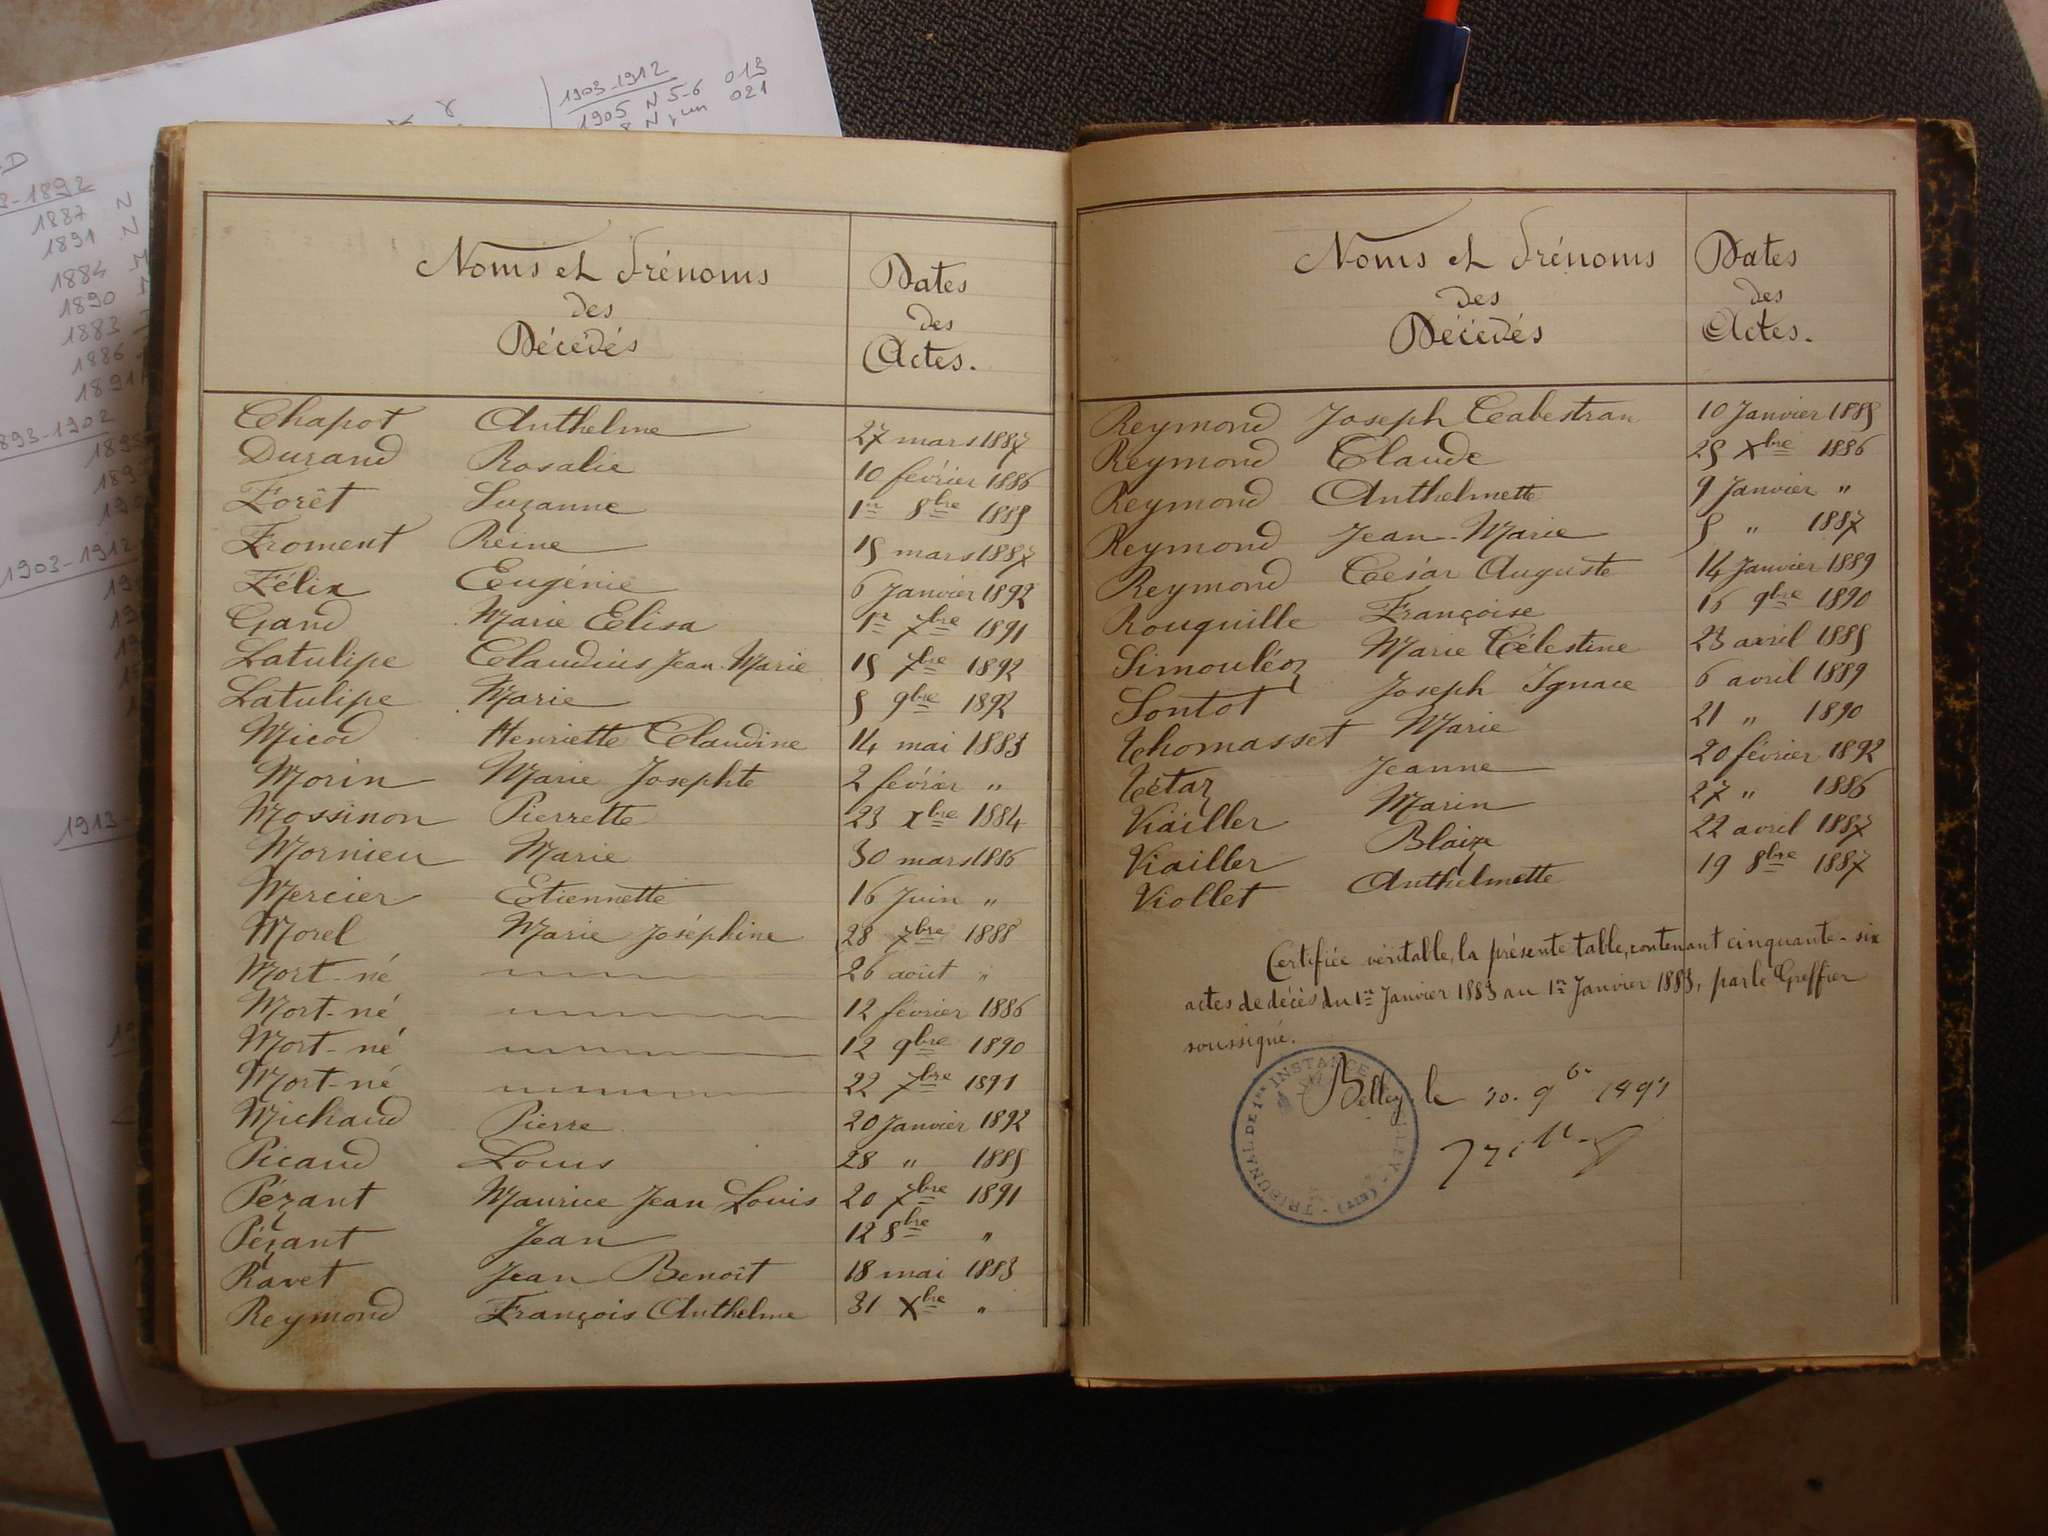 1903-1912
1905 N 5-6 013
8 N 021
D
3-1892
1887 N
1891 N
1884
1890
1883
1886
1891
893-1902
1903-1912
1913-
Noms et Prénoms
des
Décédés
Dates
des
Actes.
Chapot Anthelme 27 mars 1887
Durand Rosalie 10 février 1886
Forêt Suzanne 1er 8bre 1885
Froment Reine 15 mars 1887
Félix Eugénie 6 Janvier 1892
Gand Marie Elisa 1er 7bre 1891
Latulipe Claudius Jean-Marie 15 7bre 1892
Latulipe Marie 5 9bre 1892
Micod Henriette Claudine 14 mai 1883
Morin Marie Josephte 2 février "
Mossinon Pierrette 23 Xbre 1884
Mornieu Marie 30 mars 1886
Mercier Etiennette 16 Juin "
Morel Marie Joséphine 28 7bre 1888
Mort-né 26 août "
Mort-né 12 février 1886
Mort-né 12 9bre 1890
Mort-né 22 7bre 1891
Michaud Pierre 20 Janvier 1892
Picaud Louis 28 " 1885
Pézant Maurice Jean Louis 20 7bre 1891
Pézant Jean 12 8bre "
Ravet Jean Benoît 18 mai 1883
Reymond François Anthelme 31 Xbre "
Noms et Prénoms
des
Décédés
Dates
des
Actes.
Reymond Joseph Cabestran 10 Janvier 1885
Reymond Claude 25 Xbre 1886
Reymond Anthelmette 9 Janvier "
Reymond Jean-Marie 5 " 1887
Reymond César Auguste 14 Janvier 1889
Rouquille Françoise 16 9bre 1890
Simouléoz Marie Célestine 23 avril 1885
Sontot Joseph Ignace 6 avril 1889
Thomasset Marie 21 " 1890
Tétaz Jeanne 20 février 1892
Viailler Marin 27 " 1886
Viailler Blaize 22 avril 1887
Viollet Anthelmette 19 8bre 1887
Certifiée véritable, la présente table, contenant cinquante-six
actes de décès du 1er Janvier 1883 au 1er Janvier 1883, par le Greffier
soussigné.
Belley, le 30. 9bre 1893
TRIBUNAL DE 1RE INSTANCE BELLEY (AIN)